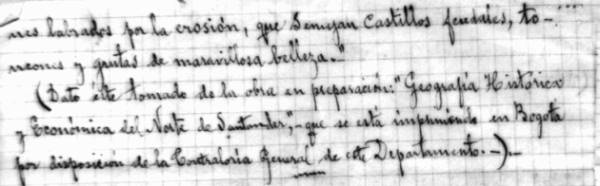 nes labrados por la erosión, que semejan castillos feudales, to-
rreones y grutas de maravillosa belleza."
(Dato éste tomado de la obra en preparación: "Geografía Histórica
y Económica del Norte de Santander", - que se está imprimiendo en Bogotá
por disposición de la Contraloría General de este Departamento. -). -